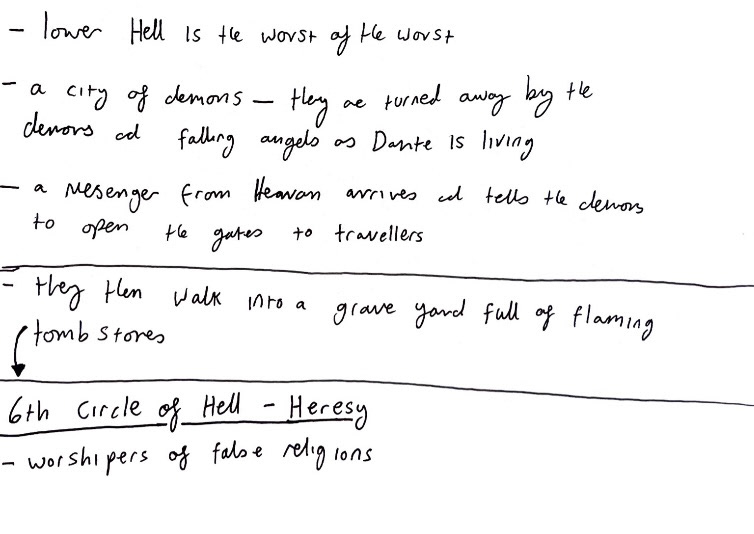 - lower Hell is the worst of the worst
- a city of demons - they are turned away by the
demons and falling angels as Dante is living
- a Mesenger from Heavan arrives and tells the demons
to open the gates to travellers
- they then walk into a grave yard full of flaming
tomb stones
6th Circle of Hell - Heresy
- worshipers of false religions